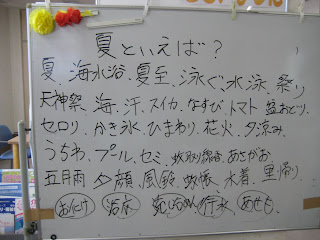 夏といえば？
夏、海水浴、夏至、泳ぐ、水泳、祭り
天神祭、海、汗、スイカ、なすび、トマト、盆おどり
セロリ、かき氷、ひまわり、花火、夕涼み
うちわ、プール、セミ、蚊取り線香、あさがお
五月雨、夕顔、風鈴、蚊帳、水着、里帰り
おばけ、浴衣、行水、あせも